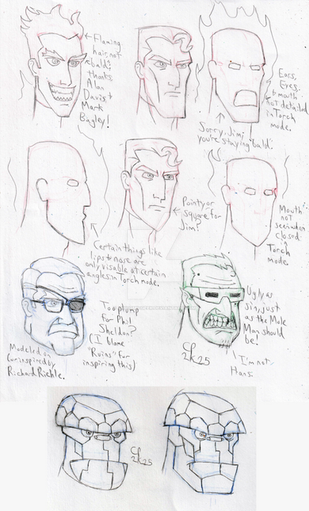 Flaming
hair, not
bald:
thanks
Alan
Davis &
Mark
Bagley!
Ears,
Eyes,
& mouth
not detailed
in Torch
mode.
Sorry, Jim,
you're staying bald.
Pointy or
square for
Jim?
Certain things like
lips & nose are
only visible at certain
angles in Torch mode.
Mouth
not
seen when
closed in
Torch
mode.
Too plump
for Phil
Sheldon?
(I blame
"Ruins" for
inspiring this)
Modeled on
(or inspired by)
Richard Riehle.
Ugly as
sin, just
as the Mole
Man should
be!
I'm not
Hans
CR
2K25
CR
2K25